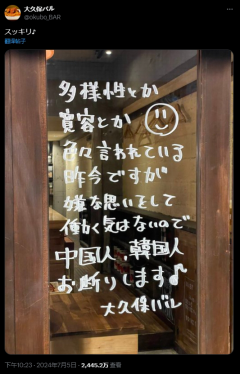 大久保バル
@okubo_BAR
スッキリ♪
多様性とか
寛容とか
色々言われている
昨今ですが
嫌な思いをして
働く気はないので
中国人、韓国人
お断りします♪
大久保バル
下午10:23 · 2024年7月5日 · 2,445.2万 查看